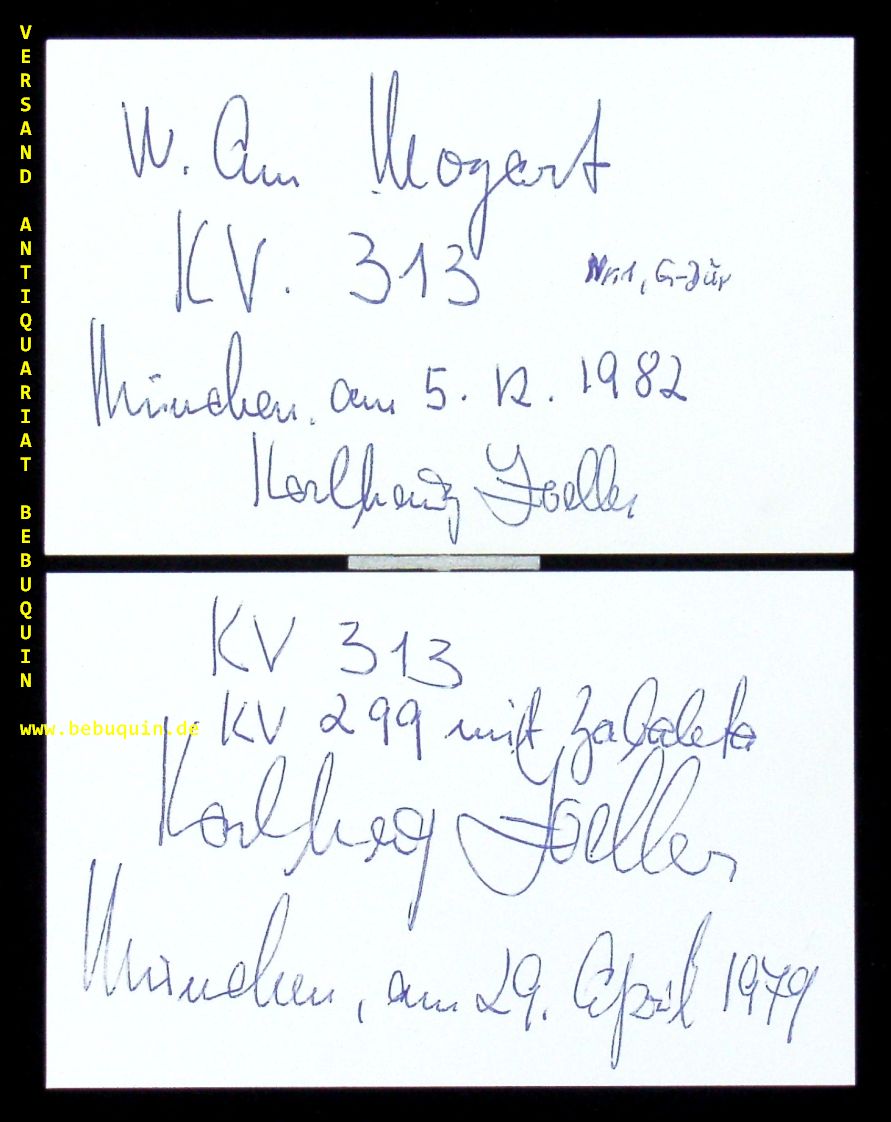 VERSAND ANTIQUARIAT BEBUQUIN
www.bebuquin.de
W. Am Mozart
KV. 313 Nr. 1, G-Dur
München, am 5. 12. 1982
Karlheinz Zoeller
KV 313
KV 299 mit Zabaleta
Karlheinz Zoeller
München, am 29. April 1979